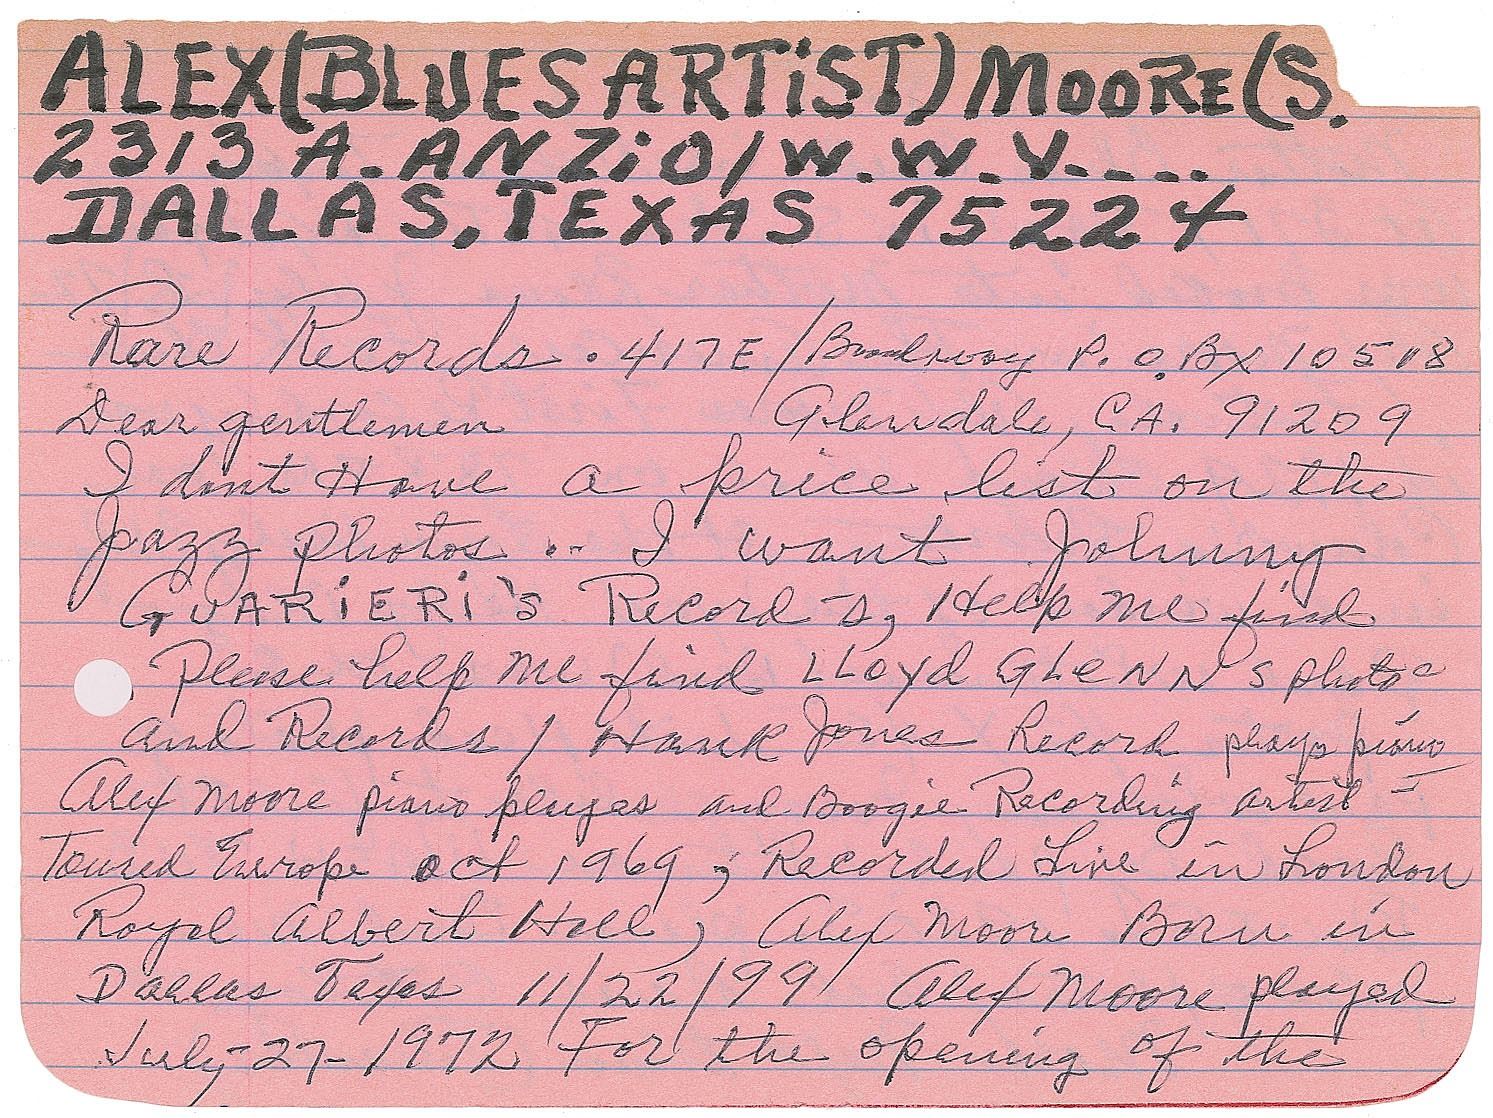 ALEX(BLUES ARTiST) MOORE(S.
2313 A. ANZiO/W.W.V----
DALLAS, TEXAS 75224
Rare Records . 417E/Broadway P.O. Bx 10518
Dear gentlemen Glendale, CA. 91209
I dont Have a price list on the
Jazz photos .. I want Johnny
GUARiERi's Record-s, Help me find
Please help me find LLoyd GLeNN's photo
and Records / Hank Jones Record plays piano
Alex Moore piano playes and Boogie Recording artist -
Toured Europe oct 1969; Recorded Live in London
Royal Albert Hall, Alex Moore Born in
Dallas Texas 11/22/99 Alex Moore played
July-27-1972 For the opening of the